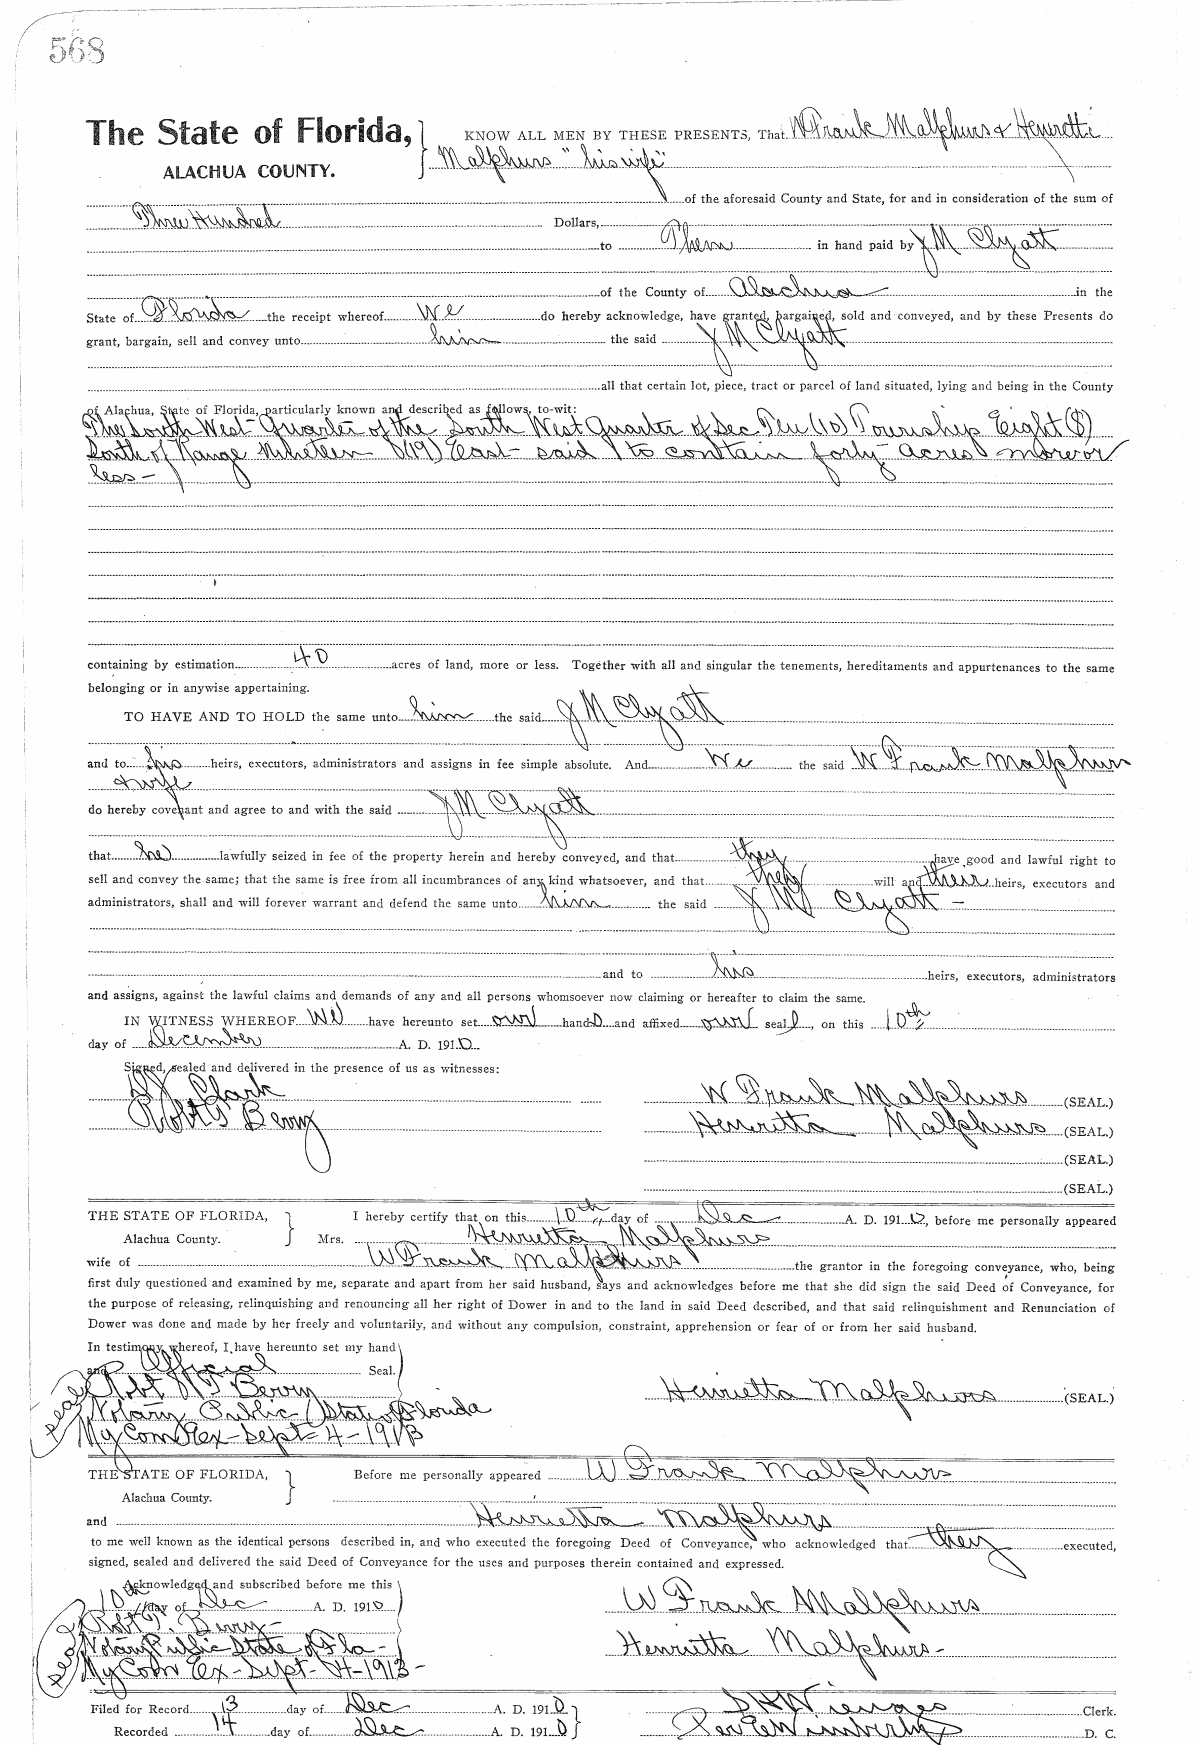 568
The State of Florida, KNOW ALL MEN BY THESE PRESENTS, That W Frank Malphurs & Henretti
ALACHUA COUNTY. Malphurs "his wife"
of the aforesaid County and State, for and in consideration of the sum of
Three Hundred Dollars,
to Them in hand paid by J M Clyatt
of the County of Alachua in the
State of Florida the receipt whereof We do hereby acknowledge, have granted, bargained, sold and conveyed, and by these Presents do
grant, bargain, sell and convey unto him the said J M Clyatt
all that certain lot, piece, tract or parcel of land situated, lying and being in the County
of Alachua, State of Florida, particularly known and described as follows, to-wit:
The South West Quarter of the South West Quarter of Sec Ten (10) Township Eight (8)
South of Range Nineteen (19) East - said to contain forty acres more or
less -
containing by estimation 40 acres of land, more or less. Together with all and singular the tenements, hereditaments and appurtenances to the same
belonging or in anywise appertaining.
TO HAVE AND TO HOLD the same unto him the said J M Clyatt
and to his heirs, executors, administrators and assigns in fee simple absolute. And We the said W Frank Malphurs
& wife
do hereby covenant and agree to and with the said J M Clyatt
that he lawfully seized in fee of the property herein and hereby conveyed, and that they have good and lawful right to
sell and convey the same; that the same is free from all incumbrances of any kind whatsoever, and that they will and their heirs, executors and
administrators, shall and will forever warrant and defend the same unto him the said J M Clyatt -
and to his heirs, executors, administrators
and assigns, against the lawful claims and demands of any and all persons whomsoever now claiming or hereafter to claim the same.
IN WITNESS WHEREOF We have hereunto set our hands and affixed our seal, on this 10th
day of December A. D. 1910.
Signed, sealed and delivered in the presence of us as witnesses:
Clark W Frank Malphurs (SEAL.)
Robt T Berry Henrietta Malphurs (SEAL.)
(SEAL.)
(SEAL.)
THE STATE OF FLORIDA, I hereby certify that on this 10th day of Dec A. D. 1910, before me personally appeared
Alachua County. Mrs. Henrietta Malphurs
wife of W Frank Malphurs the grantor in the foregoing conveyance, who, being
first duly questioned and examined by me, separate and apart from her said husband, says and acknowledges before me that she did sign the said Deed of Conveyance, for
the purpose of releasing, relinquishing and renouncing all her right of Dower in and to the land in said Deed described, and that said relinquishment and Renunciation of
Dower was done and made by her freely and voluntarily, and without any compulsion, constraint, apprehension or fear of or from her said husband.
In testimony whereof, I have hereunto set my hand
and Official Seal.
Robt T Berry Henrietta Malphurs (SEAL)
seal Notary Public State of Florida
My Com Ex - Sept - 4 - 1913
THE STATE OF FLORIDA, Before me personally appeared W Frank Malphurs
Alachua County.
and Henrietta Malphurs
to me well known as the identical persons described in, and who executed the foregoing Deed of Conveyance, who acknowledged that they executed,
signed, sealed and delivered the said Deed of Conveyance for the uses and purposes therein contained and expressed.
Acknowledged and subscribed before me this
10th day of Dec A. D. 1910 W Frank Malphurs
Robt T. Berry -
seal Notary Public State of Fla - Henrietta Malphurs -
My Com Ex - Sept - 4 - 1913 -
Filed for Record 13 day of Dec A. D. 1910 S H Wienges Clerk.
Recorded 14 day of Dec A. D. 1910 Wimberly D. C.